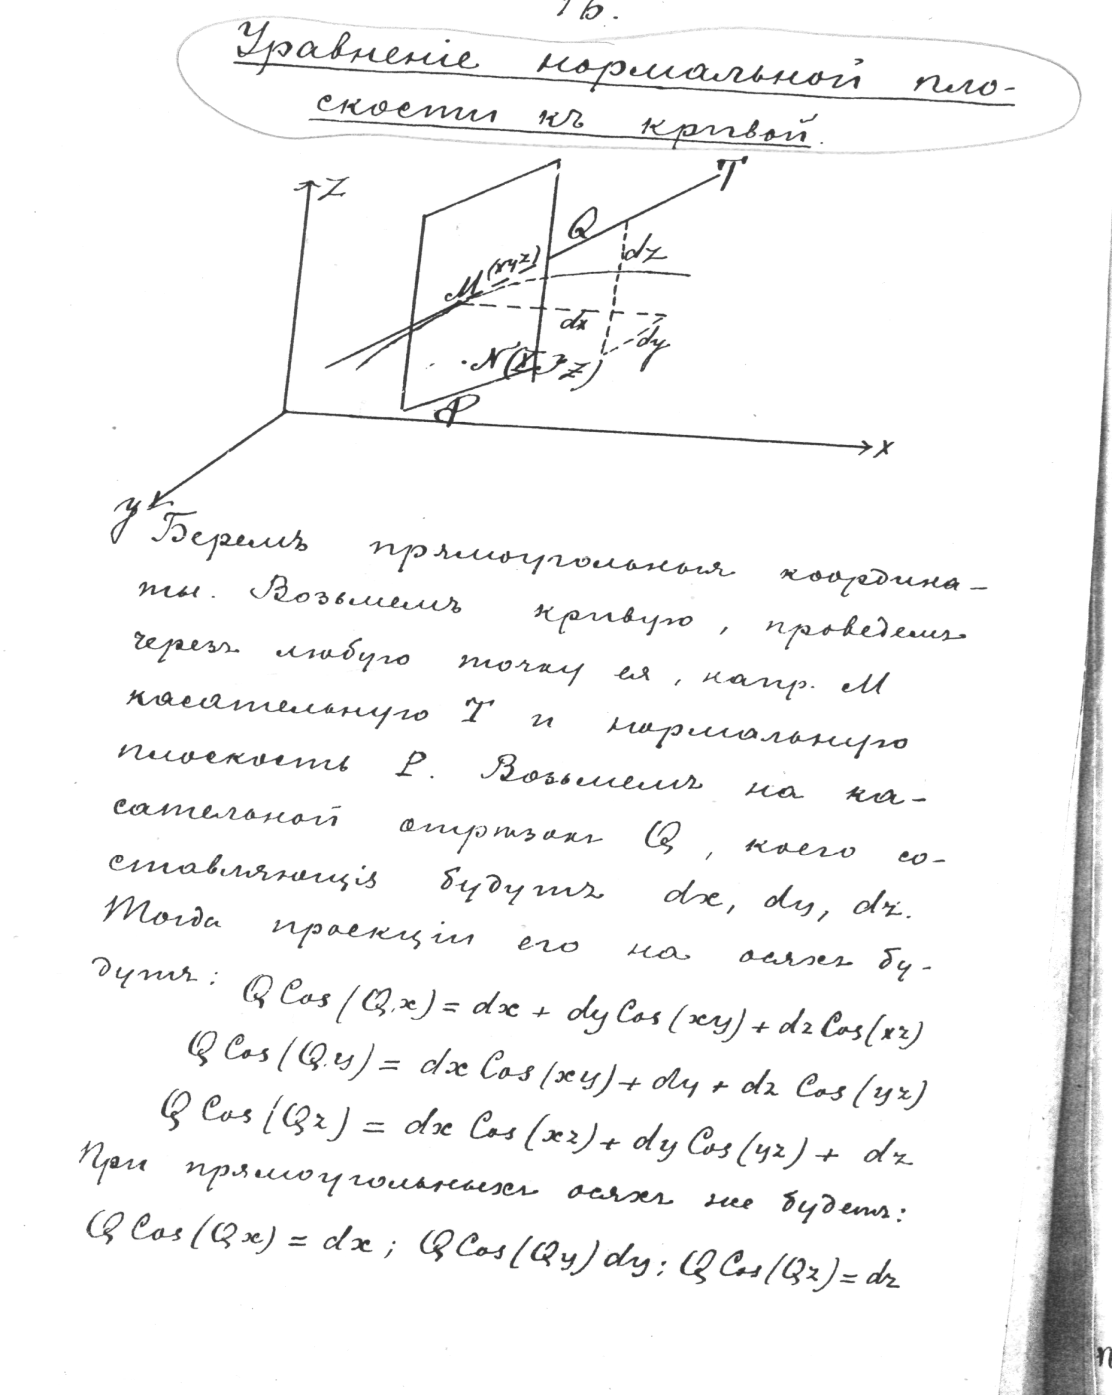 16.
Уравненіе нормальной пло-
скости къ кривой.
Z
T
Q
dz
M (xyz)
dx
dy
N (X Y Z)
P
x
y
Беремъ прямоугольныя координа-
ты. Возьмемъ кривую, проведемъ
черезъ любую точку ея, напр. M
касательную T и нормальную
плоскость P. Возьмемъ на ка-
сательной отрѣзокъ Q, коего со-
ставляющія будутъ dx, dy, dz.
Тогда проекціи его на осяхъ бу-
дутъ: Q Cos (Q.x) = dx + dy Cos (xy) + dz Cos (xz)
Q Cos (Q.y) = dx Cos (xy) + dy + dz Cos (yz)
Q Cos (Qz) = dx Cos (xz) + dy Cos (yz) + dz
При прямоугольныхъ осяхъ же будетъ:
Q Cos (Qx) = dx ; Q Cos (Qy) dy ; Q Cos (Qz) = dz